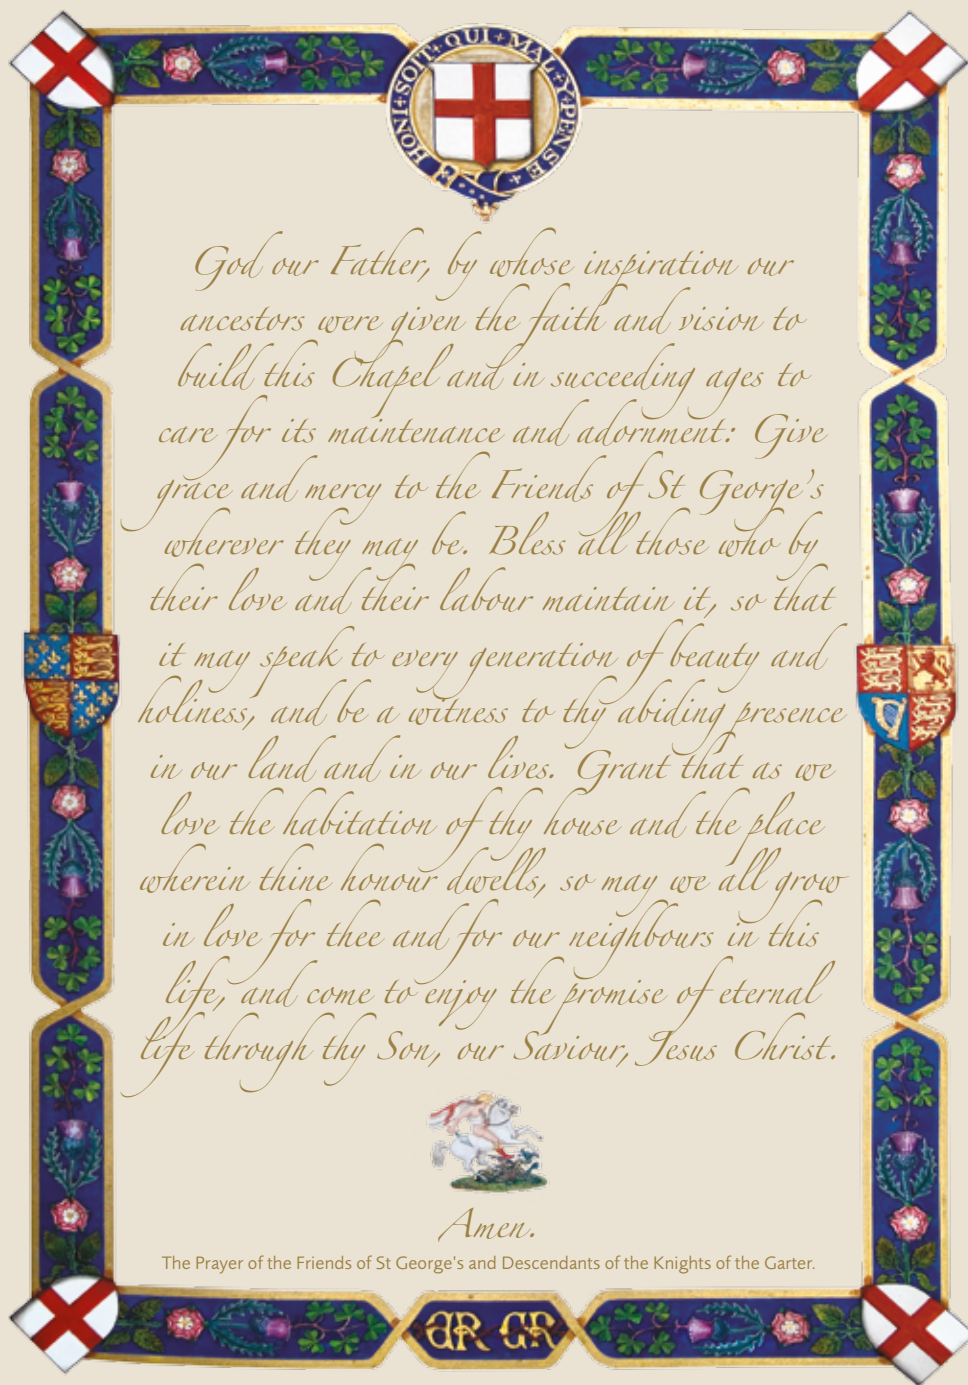 HONI + SOIT + QUI + MAL + Y + PENSE +
God our Father, by whose inspiration our
ancestors were given the faith and vision to
build this Chapel and in succeeding ages to
care for its maintenance and adornment: Give
grace and mercy to the Friends of St George's
wherever they may be. Bless all those who by
their love and their labour maintain it, so that
it may speak to every generation of beauty and
holiness, and be a witness to thy abiding presence
in our land and in our lives. Grant that as we
love the habitation of thy house and the place
wherein thine honour dwells, so may we all grow
in love for thee and for our neighbours in this
life, and come to enjoy the promise of eternal
life through thy Son, our Saviour, Jesus Christ.
Amen.
The Prayer of the Friends of St George's and Descendants of the Knights of the Garter.